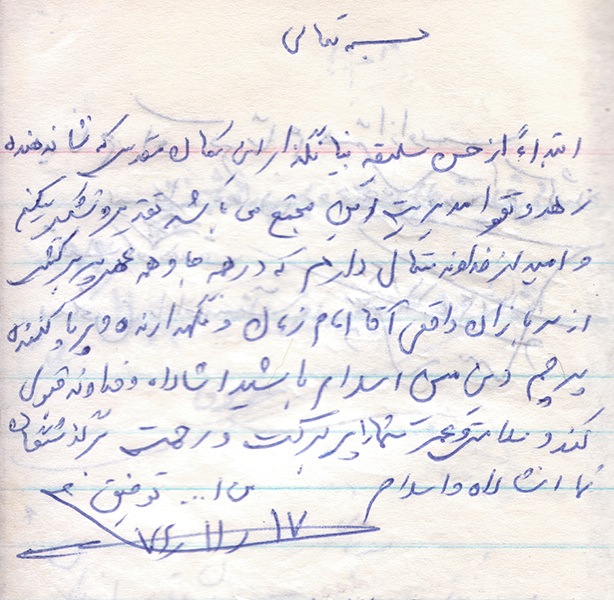 بسمه تعالی
ابتداءً از حسن سلیقه بنیانگذار این مکان مقدس که نشاندهنده
زهد و تقوا مدیریت این مجتمع می باشد تقدیر و تشکر میکنم
و امید از خداوند متعال دارم که در همه جا و همه
از سربازان واقعی آقا امام زمان و نگهدارنده و برپا کننده
پرچم دین مبین اسلام باشید انشااله و خداوند قبول
کند و سلامتی و عمر شما را پر برکت و رحمت گذشتگان
انشااله والسلام
من ا... توفیق
۱۷ر۱۱ر۷۴